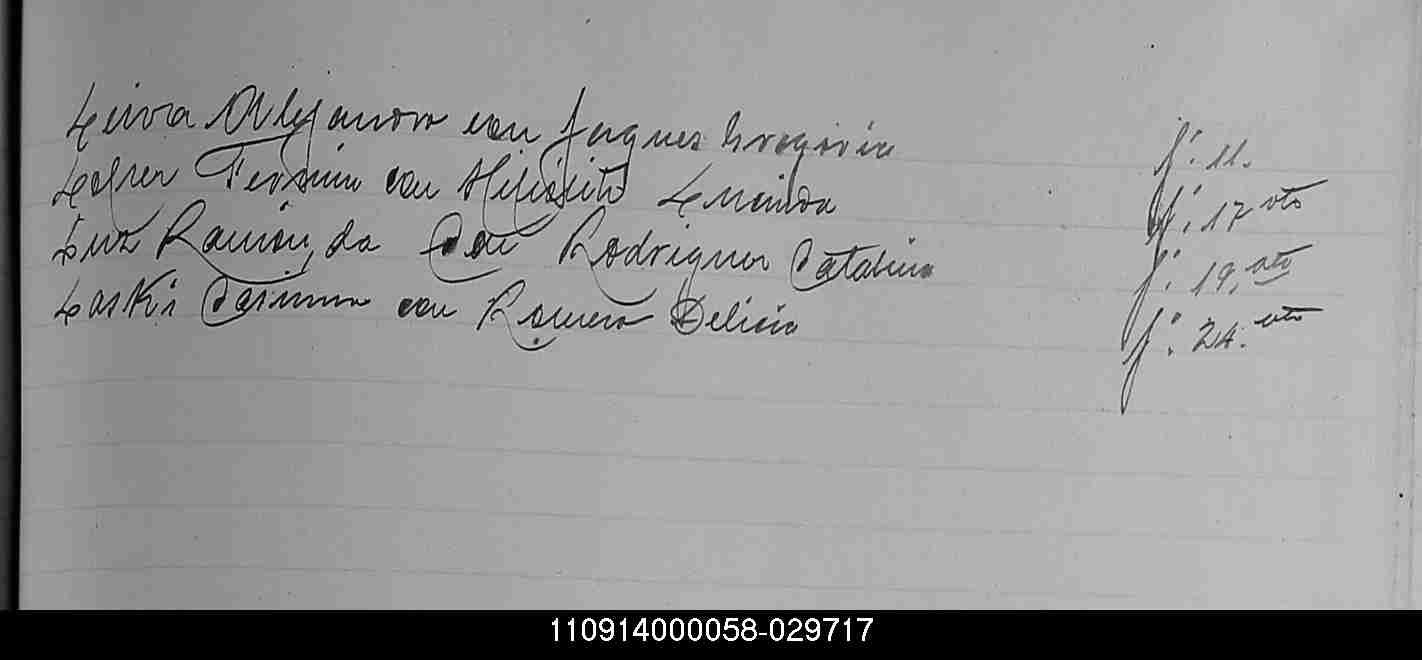 Leiva Alejandro con Jaques Gregoria f. 11.
Fermin con Lucinda f. 17 vto
Luz Ramón, da con Rodriguez Catalina f. 19. vto
Laskis Casimiro con Romero Delicia f. 24. vto
110914000058-029717